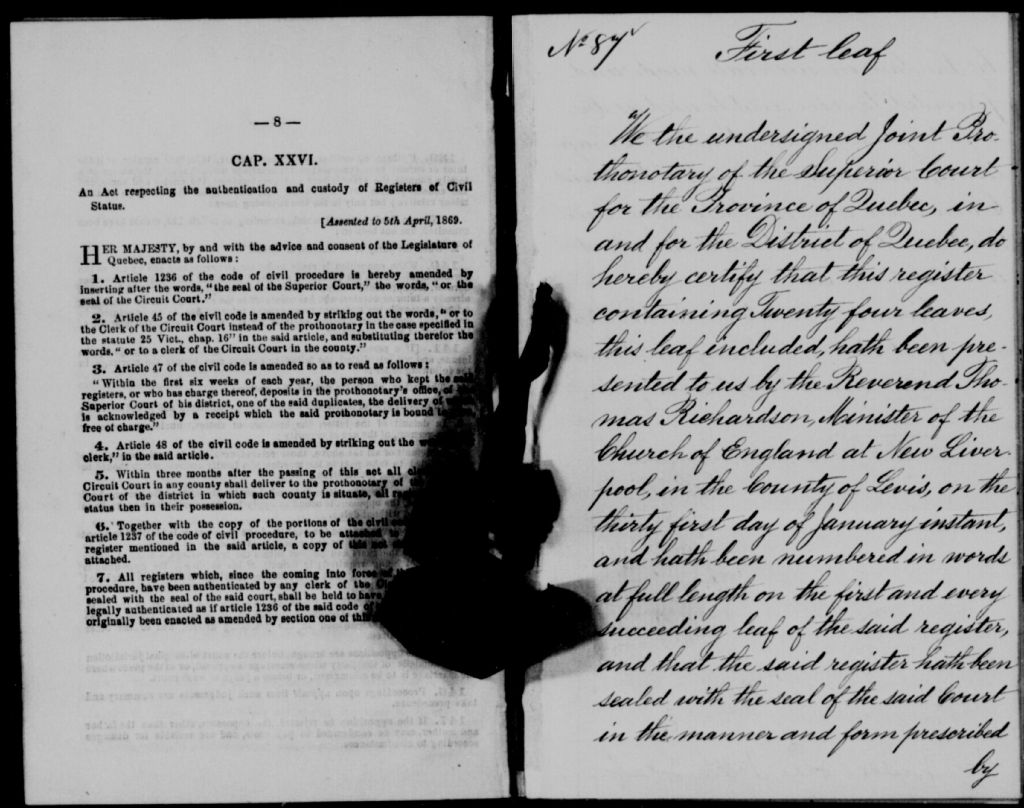 — 8 —
CAP. XXVI.
An Act respecting the authentication and custody of Registers of Civil
Status.
[Assented to 5th April, 1869.
HER MAJESTY, by and with the advice and consent of the Legislature of
Quebec, enacts as follows :
1. Article 1236 of the code of civil procedure is hereby amended by
inserting after the words, "the seal of the Superior Court," the words, "or the
seal of the Circuit Court."
2. Article 45 of the civil code is amended by striking out the words, "or to
the Clerk of the Circuit Court instead of the prothonotary in the case specified in
the statute 25 Vict., chap. 16" in the said article, and substituting therefor the
words, "or to a clerk of the Circuit Court in the county."
3. Article 47 of the civil code is amended so as to read as follows :
"Within the first six weeks of each year, the person who kept the
registers, or who has charge thereof, deposits in the prothonotary's office, of
Superior Court of his district, one of the said duplicates, the delivery of
is acknowledged by a receipt which the said prothonotary is bound to
free of charge."
4. Article 48 of the civil code is amended by striking out the
clerk," in the said article.
5. Within three months after the passing of this act all
Circuit Court in any county shall deliver to the prothonotary of
Court of the district in which such county is situate, all
status then in their possession.
6. Together with the copy of the portions of the civil
article 1237 of the code of civil procedure, to be attached to
register mentioned in the said article, a copy of this act
attached.
7. All registers which, since the coming into force of
procedure, have been authenticated by any clerk of the
sealed with the seal of the said court, shall be held to have
legally authenticated as if article 1236 of the said code
originally been enacted as amended by section one of this
No 87
First leaf
We the undersigned Joint Pro-
thonotary of the Superior Court
for the Province of Quebec, in
and for the District of Quebec, do
hereby certify that this register
containing Twenty four leaves,
this leaf included, hath been pre-
sented to us by the Reverend Tho-
mas Richardson, Minister of the
Church of England at New Liver-
pool, in the County of Levis, on the
thirty first day of January instant,
and hath been numbered in words
at full length on the first and every
succeeding leaf of the said register,
and that the said register hath been
sealed with the seal of the said Court
in the manner and form prescribed
by